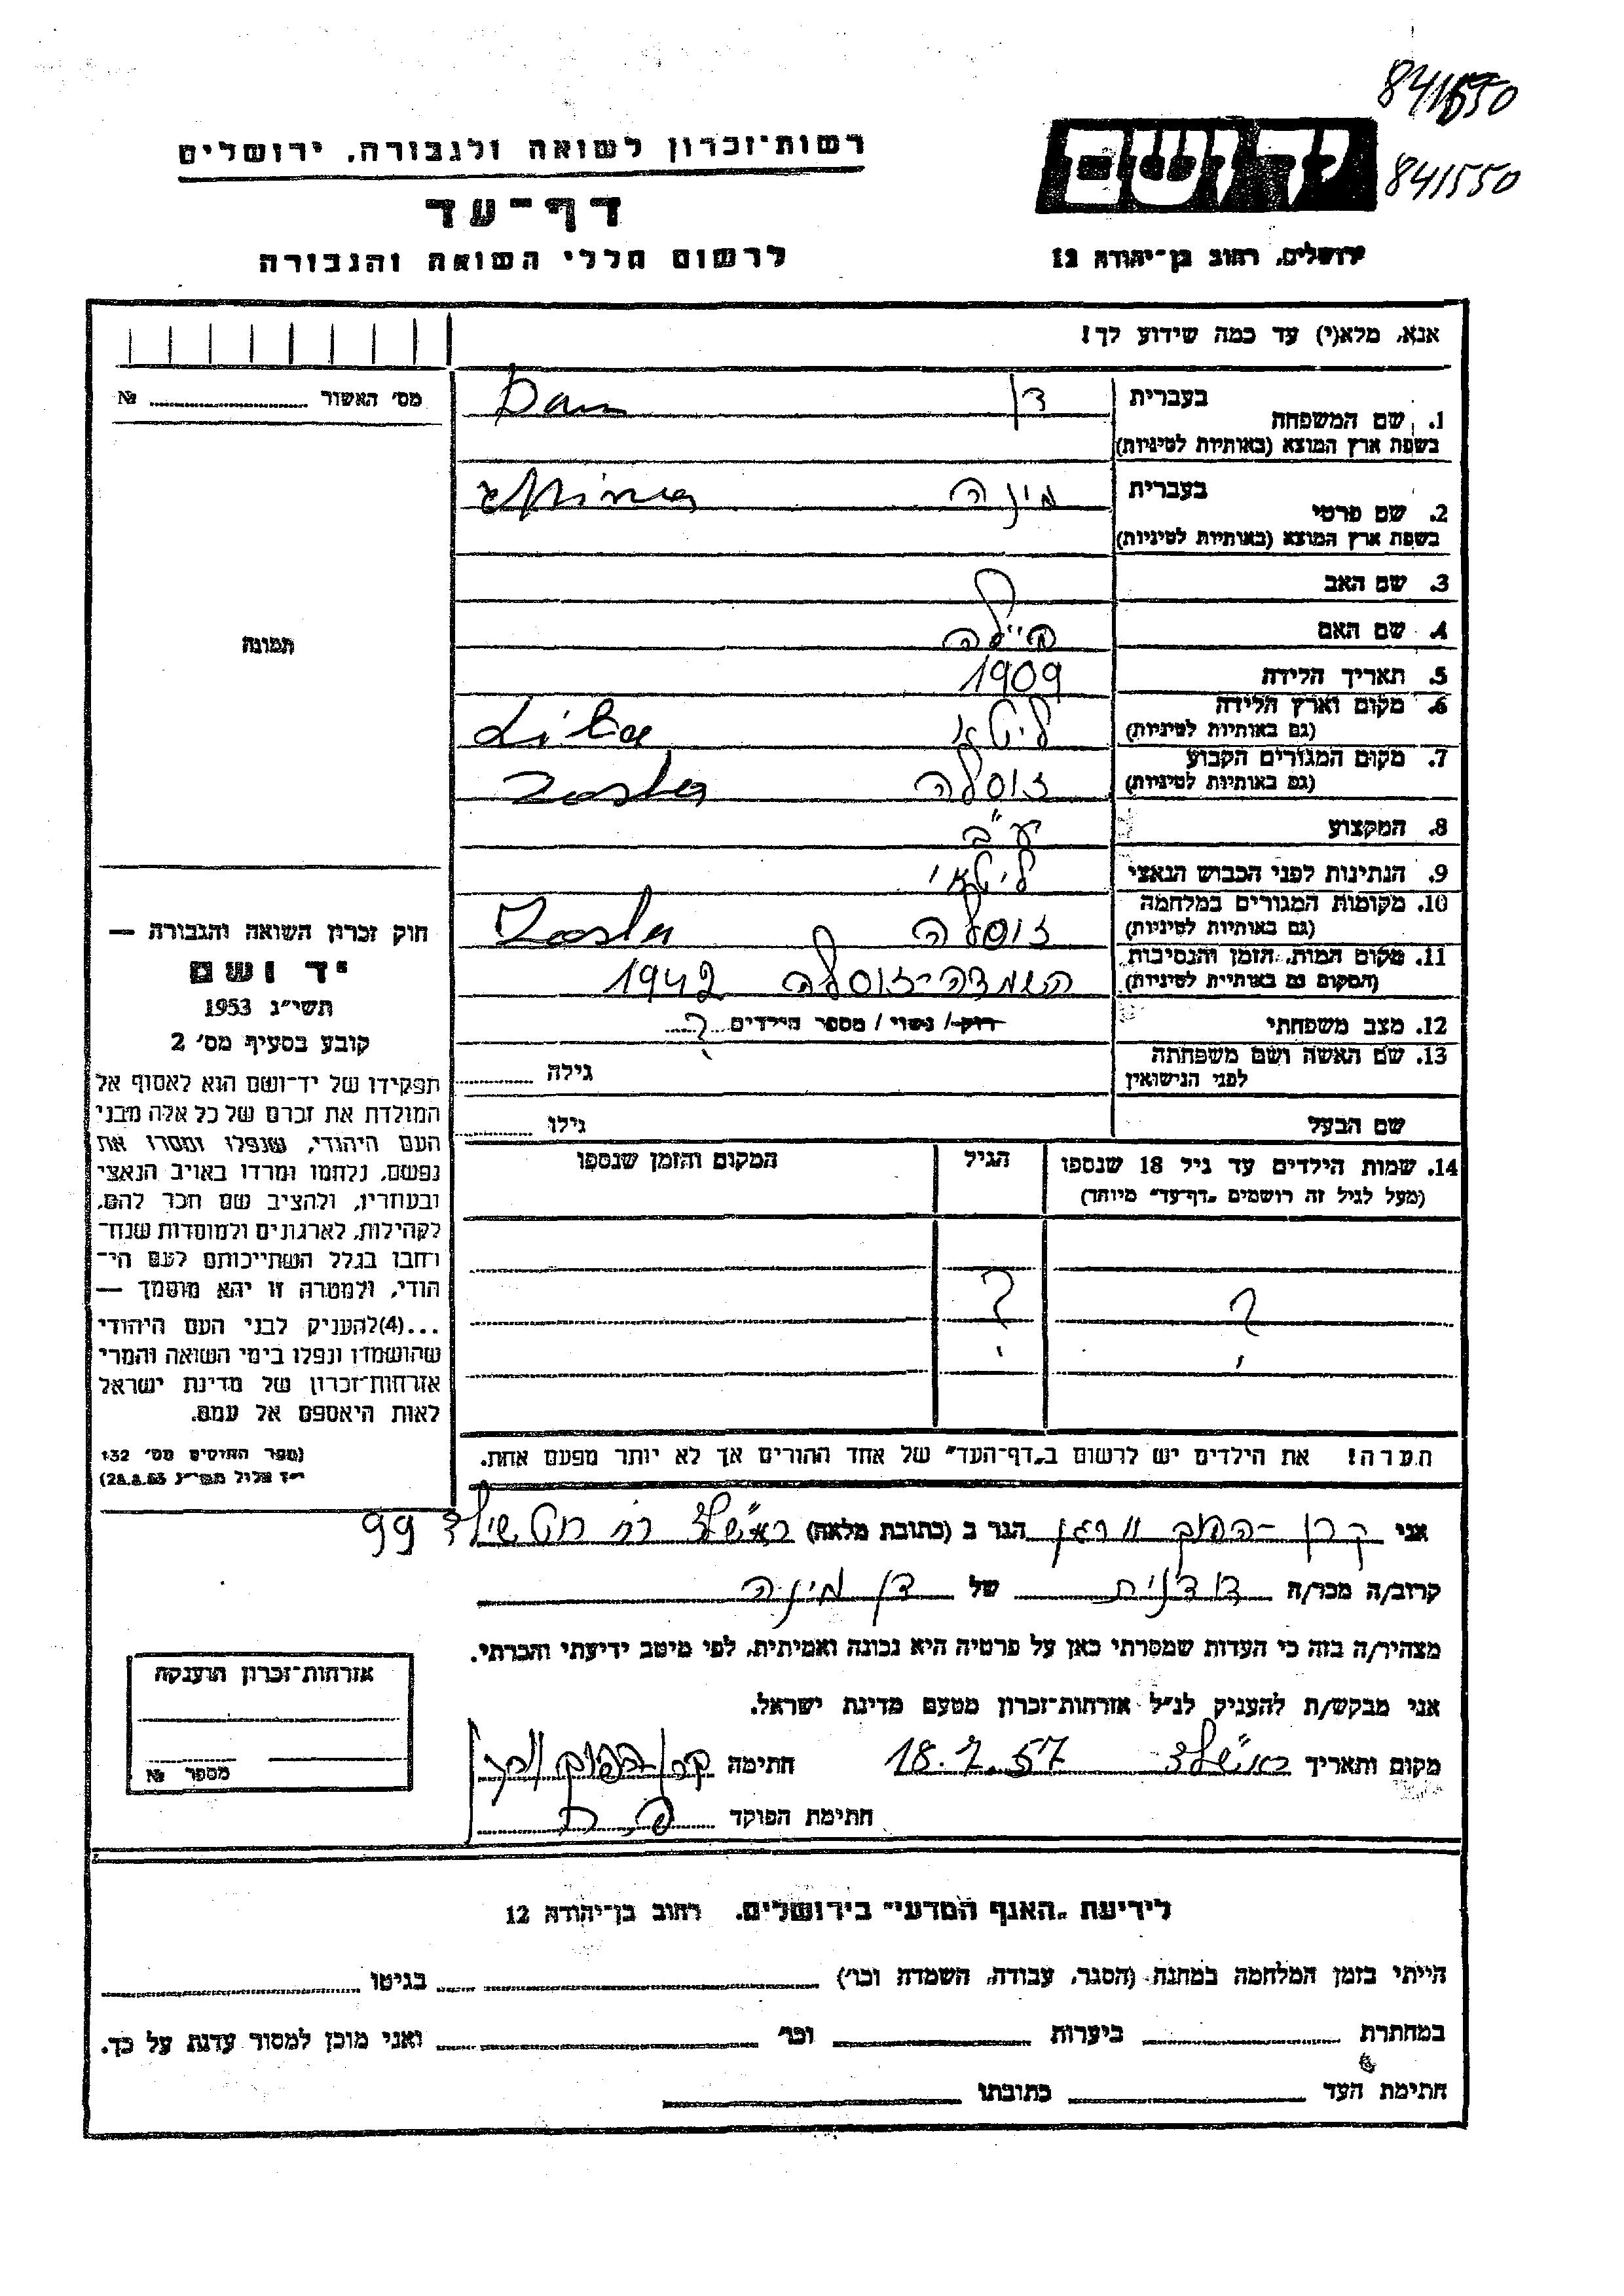 841550
841550
יד ושם
רשות־זכרון לשואה ולגבורה, ירושלים
דף־עד
לרשום חללי השואה והגבורה
ירושלים, רחוב בן־יהודה 12
אנא, מלא(י) עד כמה שידוע לך!
מס׳ האשור № 
1. שם המשפחה
בעברית דן Dan
בשפת ארץ המוצא (באותיות לטיניות)
2. שם פרטי
בעברית מינה Mina
בשפת ארץ המוצא (באותיות לטיניות)
3. שם האב ?
4. שם האם
5. תאריך הלידה 1909
6. מקום וארץ הלידה ליטא Lita
(גם באותיות לטיניות)
7. מקום המגורים הקבוע זוסלה Zosla
(גם באותיות לטיניות)
8. המקצוע עק״ב
9. הנתינות לפני הכבוש הנאצי ליטאי
10. מקומות המגורים במלחמה זוסלה Zosla
(גם באותיות לטיניות)
11. מקום המות, הזמן והנסיבות השמדה זוסלה 1942
(המקום גם באותיות לטיניות)
12. מצב משפחתי רוק/ נשוי / מספר הילדים ?
13. שם האשה ושם משפחתה
לפני הנישואין
גילה
שם הבעל גילו
14. שמות הילדים עד גיל 18 שנספו
(מעל לגיל זה רושמים „דף־עד״ מיוחד)
הגיל
המקום והזמן שנספו
? ?
הערה! את הילדים יש לרשום ב„דף־העד״ של אחד ההורים אך לא יותר מפעם אחת.
תמונה
חוק זכרון השואה והגבורה —
יד ושם
תשי״ג 1953
קובע בסעיף מס׳ 2
תפקידו של יד־ושם הוא לאסוף אל
המולדת את זכרם של כל אלה מבני
העם היהודי, שנפלו ומסרו את
נפשם, נלחמו ומרדו באויב הנאצי
ובעוזריו, ולהציב שם וזכר להם,
לקהילות, לארגונים ולמוסדות שנח־
רחבו בגלל השתייכותם לעם הי־
הודי, ולמטרה זו יהא מוסמך —
...(4)להעניק לבני העם היהודי
שהושמדו ונפלו בימי השואה והמרי
אזרחות־זכרון של מדינת ישראל
לאות היאספם אל עמם.
(ספר החוקים מס׳ 132
י״ז אלול תשי״ג 28.8.53)
אני הגר ב (כתובת מלאה) ראשל״צ רח רוטשילד 99
קרוב/ה מכר/ה דודנית של דן מינה
מצהיר/ה בזה כי העדות שמסרתי כאן על פרטיה היא נכונה ואמיתית, לפי מיטב ידיעתי והכרתי.
אני מבקש/ת להעניק לנ״ל אזרחות־זכרון מטעם מדינת ישראל.
מקום ותאריך ראשל״צ 18.7.57 חתימה
חתימת הפוקד
אזרחות־זכרון הוענקה
מספר №
לידיעת „האגף המדעי״ בירושלים, רחוב בן־יהודה 12
הייתי בזמן המלחמה במחנה (הסגר, עבודה, השמדה וכו׳) בגיטו
במחתרת ביערות וכו׳ ואני מוכן למסור עדות על כך.
חתימת העד כתובתו